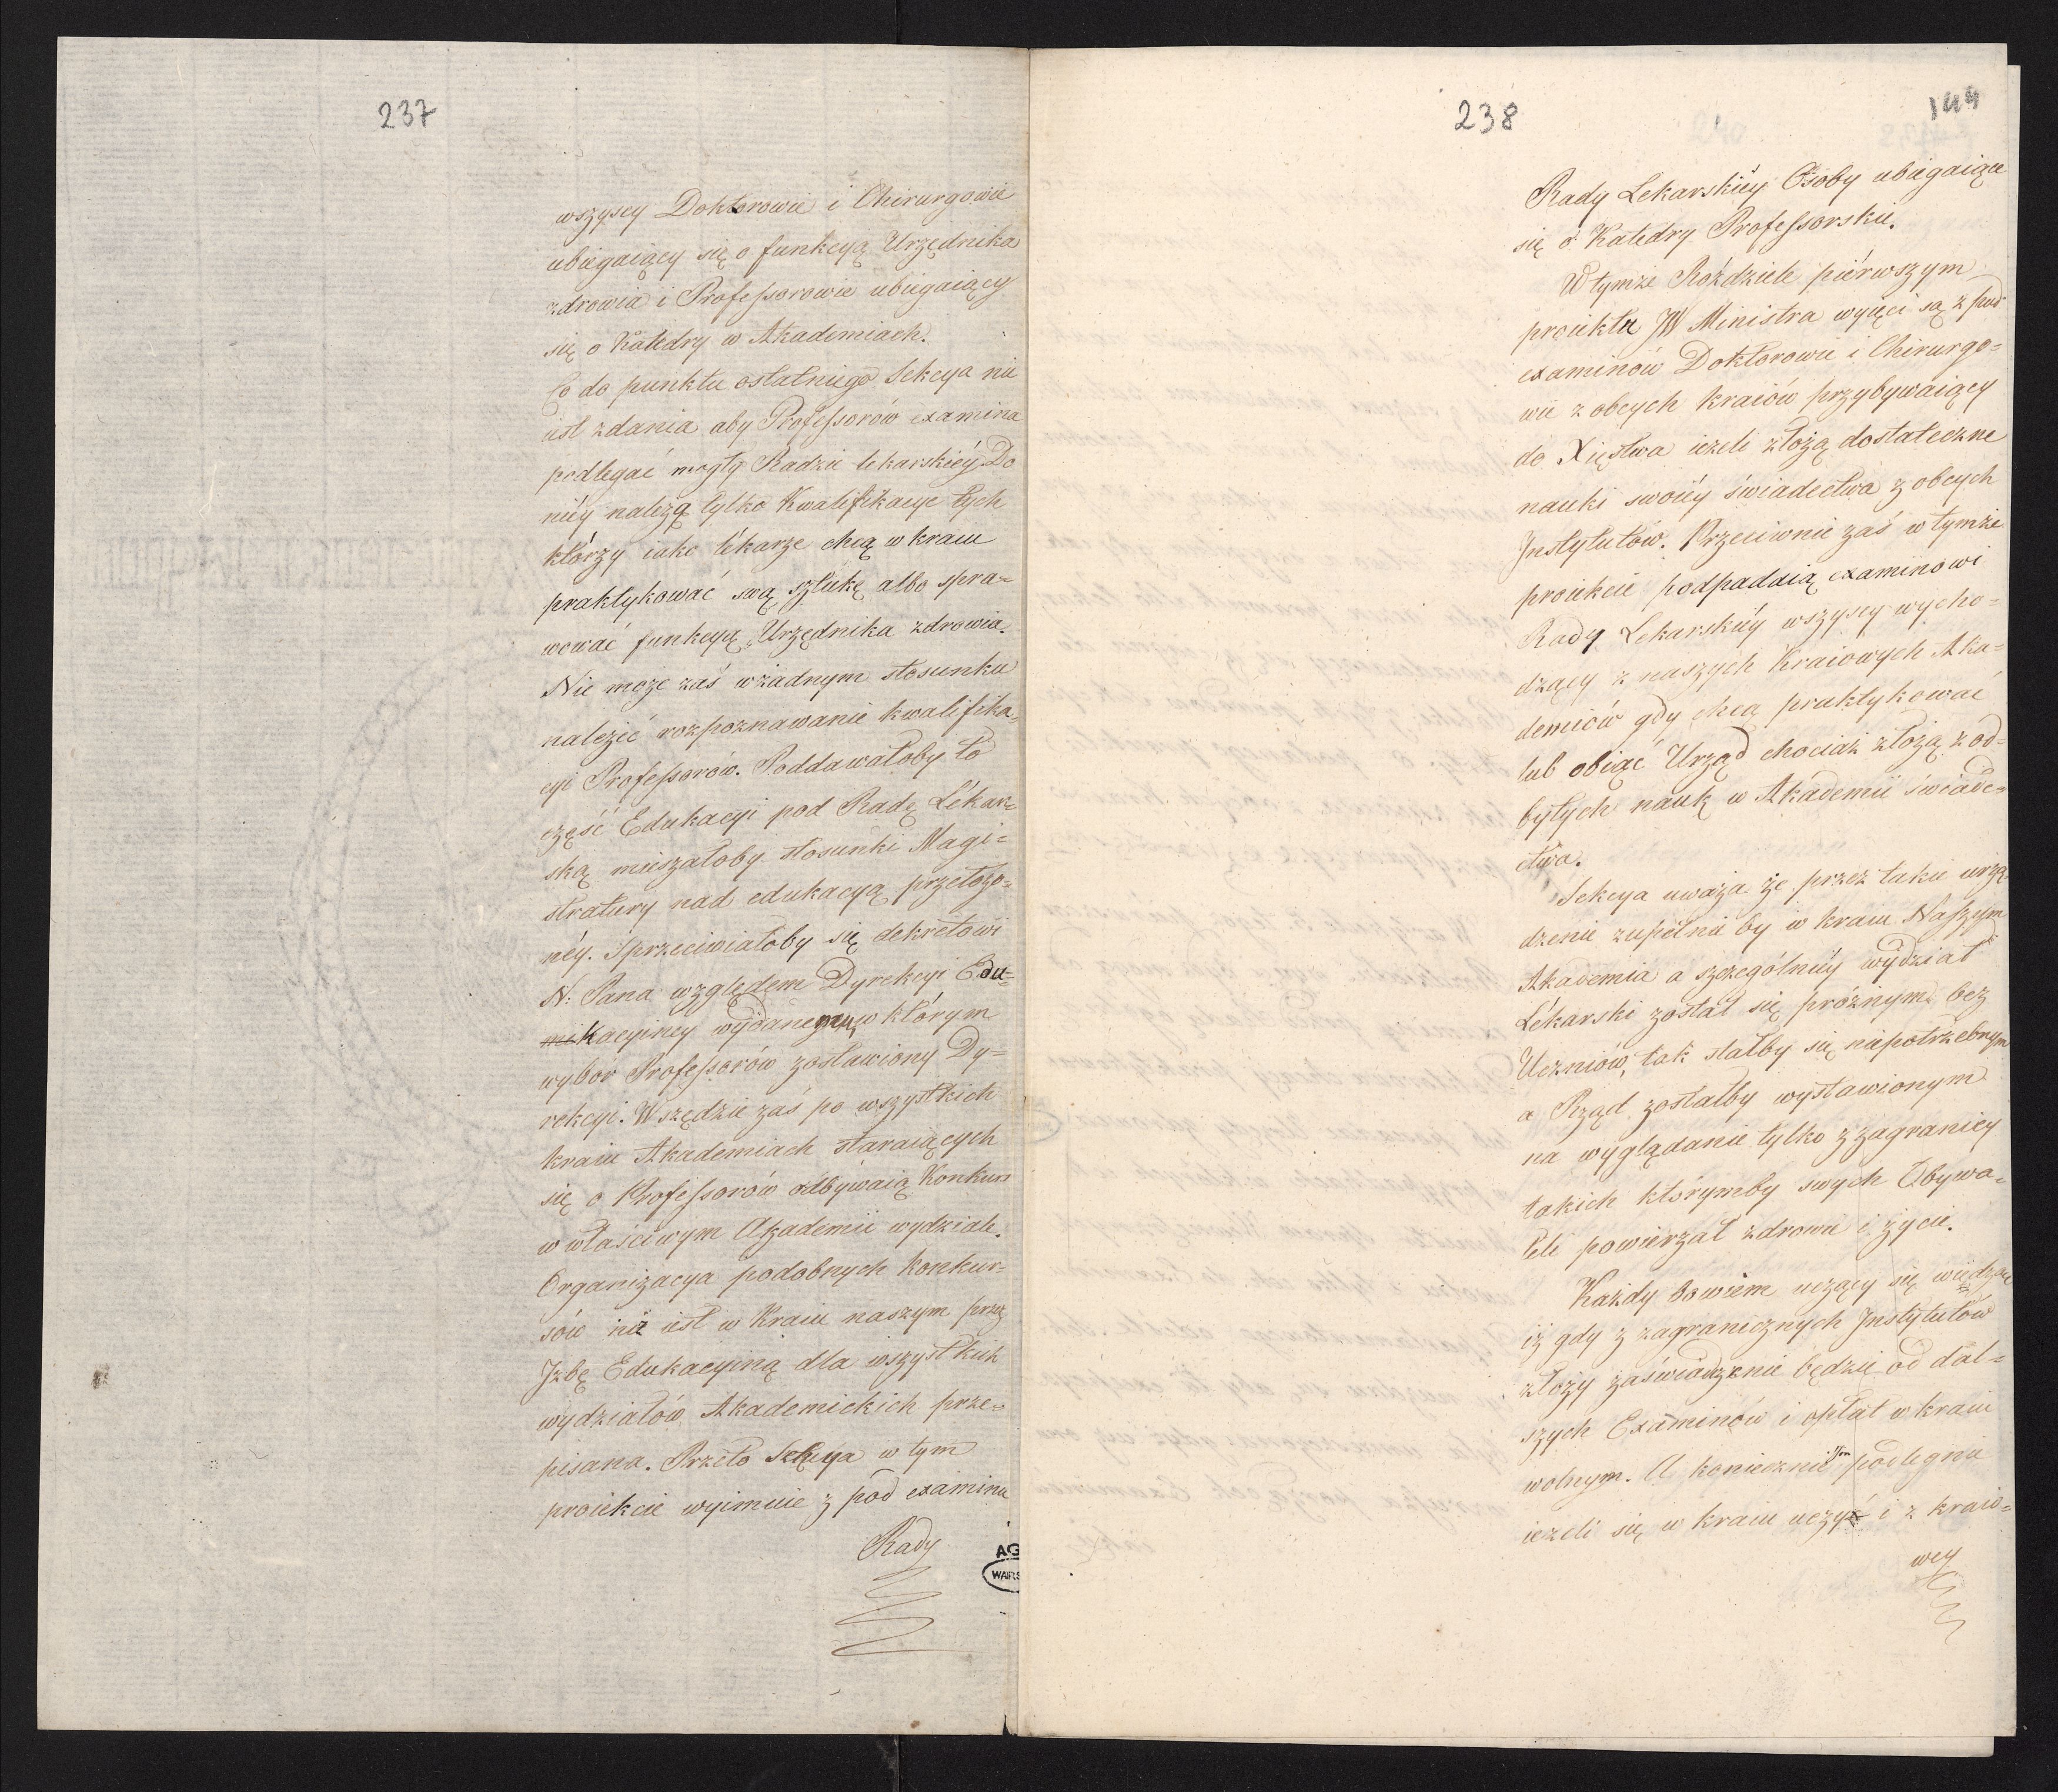 237
wszyscy Doktorowie i Chirurgowie
ubiegaiący się o funkcyą Urzędnika
zdrowia i Professorowie ubiegaiący
się o Katedry w Akademiach.
Co do punktu ostatniego Sekcya nie
iest zdania aby Professorów examina
podlegać mogły Radzie lekarskiéy. Do
niéy należą tylko Kwalifikacye tych
którzy iako lékarze chcą w kraiu
praktykować swą sztukę albo spra=
wować funkcyę Urzędnika zdrowia.
Nie może zaś w żadnym stosunku
należéć rozpoznawanie kwalifika=
cyi Professorów. Poddawałoby to
część Edukacyi pod Radę Lékar=
ską mieszałoby stosunki Magi=
stratury nad edukacyą przełożo=
néy. Sprzeciwiałoby się dekretowi
N: Pana względem Dyrekcyi Edu=
kacyiney wydanemu, w którym
wybór Professorów zostawiony Dy=
rekcyi. Wszędzie zaś po wszystkich
kraiu Akademiach staraiących
się o Professorów odbywaią Konkurs
w właściwym Akademii wydziale.
Organizacya podobnych konkur=
sów iuż iest w Kraiu naszym przez
Jzbę Edukacyiną dla wszystkich
wydziałów Akademickich prze=
pisana. Przeto Sekcya w tym
proiekcie wyimuie z pod examinu
Rady
AG
WARS
238
144
Rady Lekarskiéy Osoby ubiegaiące
się o Katedry Professorskie.
W tymże Rozdziele piérwszym
proiektu JW Ministra wyięci są z pod
examinów Doktorowie i Chirurgo=
wie z obcych kraiów przybywaiący
do Xięstwa ieżeli złożą dostateczne
nauki swoiéy świadectwa z obcych
Jnstytutów. Przeciwnie zaś w tymże
proiekcie podpadaią examinowi
Rady Lekarskiéy wszyscy wycho=
dzący z naszych Kraiowych Aka=
demiów gdy chcą praktykować
lub obiąć Urząd chociaż złożą z od=
bytych nauk w Akademii świade=
ctwa.
Sekcya uważa że przez takie urzą
dzenie zupełnie by w kraiu Naszym
Akademia a szczególniéy wydział
Lékarski został się próżnym bez
Uczniów, tak stałby się niepotrzebnym
a Rząd zostałby wystawionym
na wyglądanie tylko z zagranicy
takich którymby swych Obywa=
teli powierzał zdrowie i życie.
Każdy bowiem uczący się wiedząc
iż gdy z zagranicznych Jnstytutów
złoży zaświadczenie będzie od dal=
szych Examinów i opłat w kraiu
wolnym. A koniecznie podlegnie
ieżeli się w kraiu uczyć i z kraio=
wey